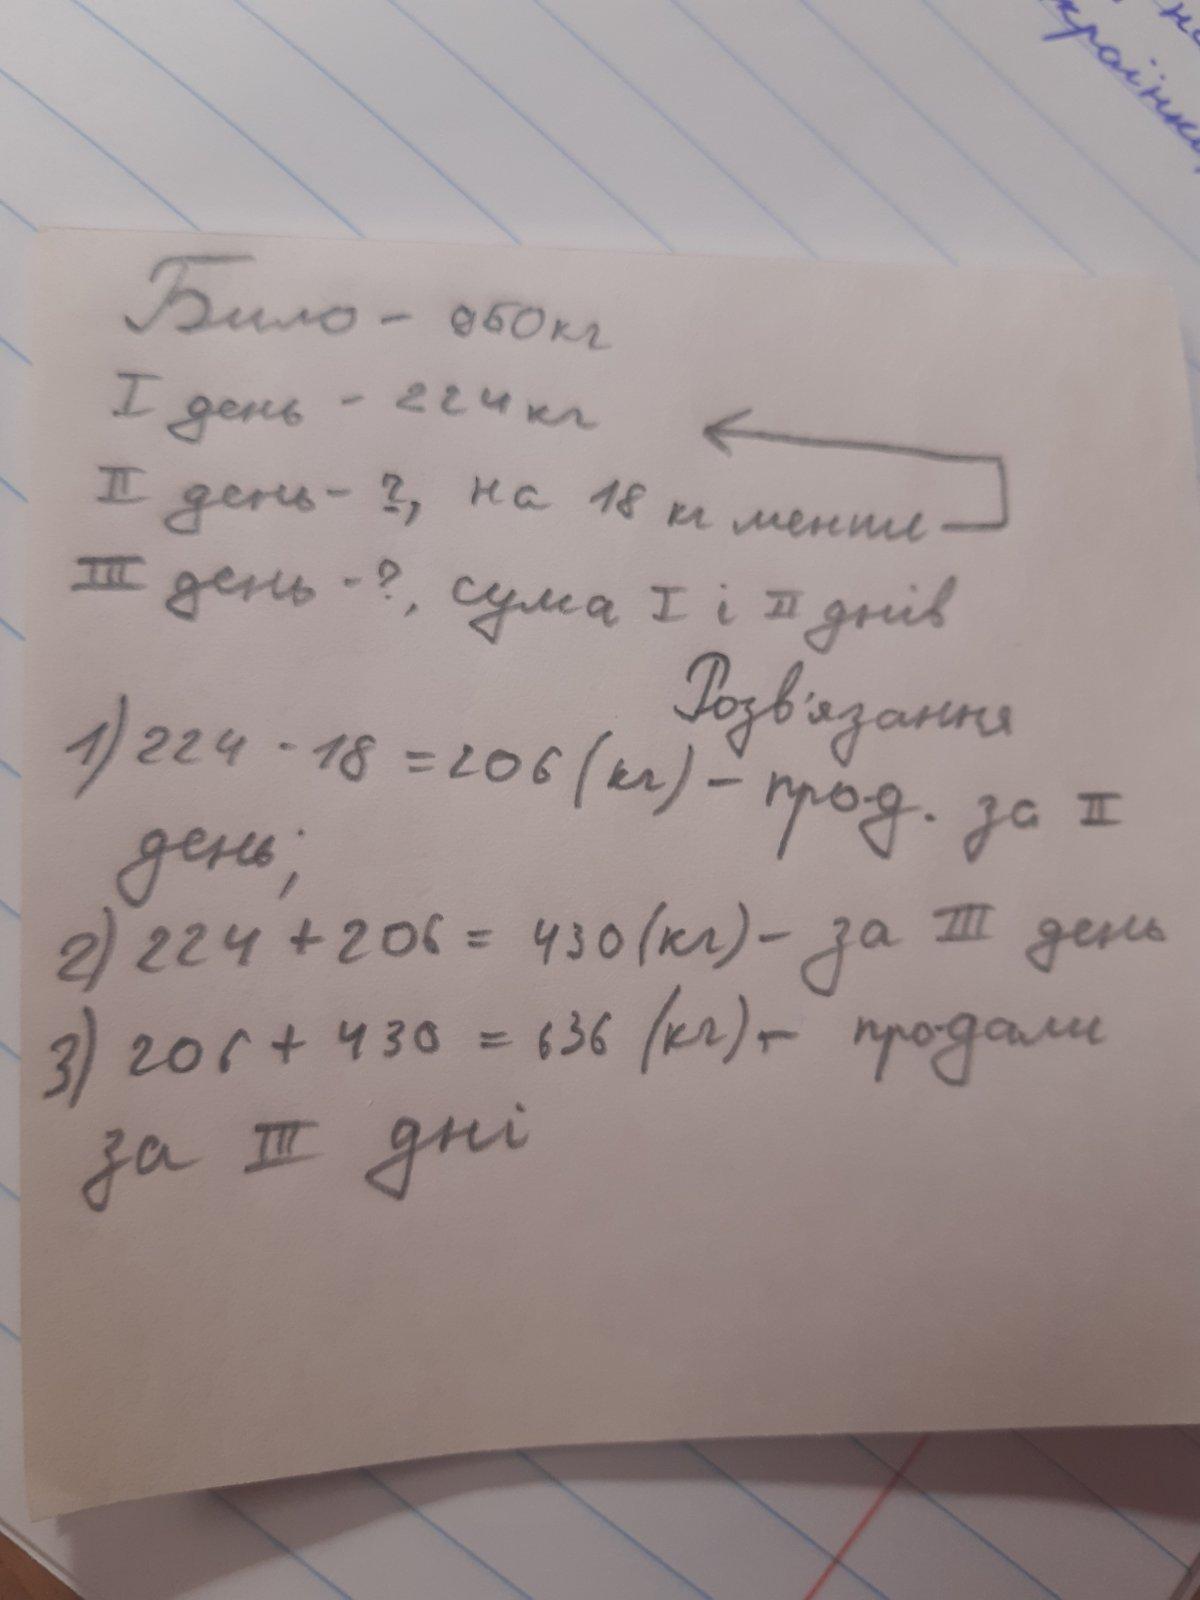 Било - 960кг
I день - 224кг
II день - ?, на 18 кг менше
III день - ?, сума I і II днів
Розв'язання
1) 224 - 18 = 206 (кг) - прод. за II
день;
2) 224 + 206 = 430 (кг) - за III день
3) 206 + 430 = 636 (кг) - продали
за III дні